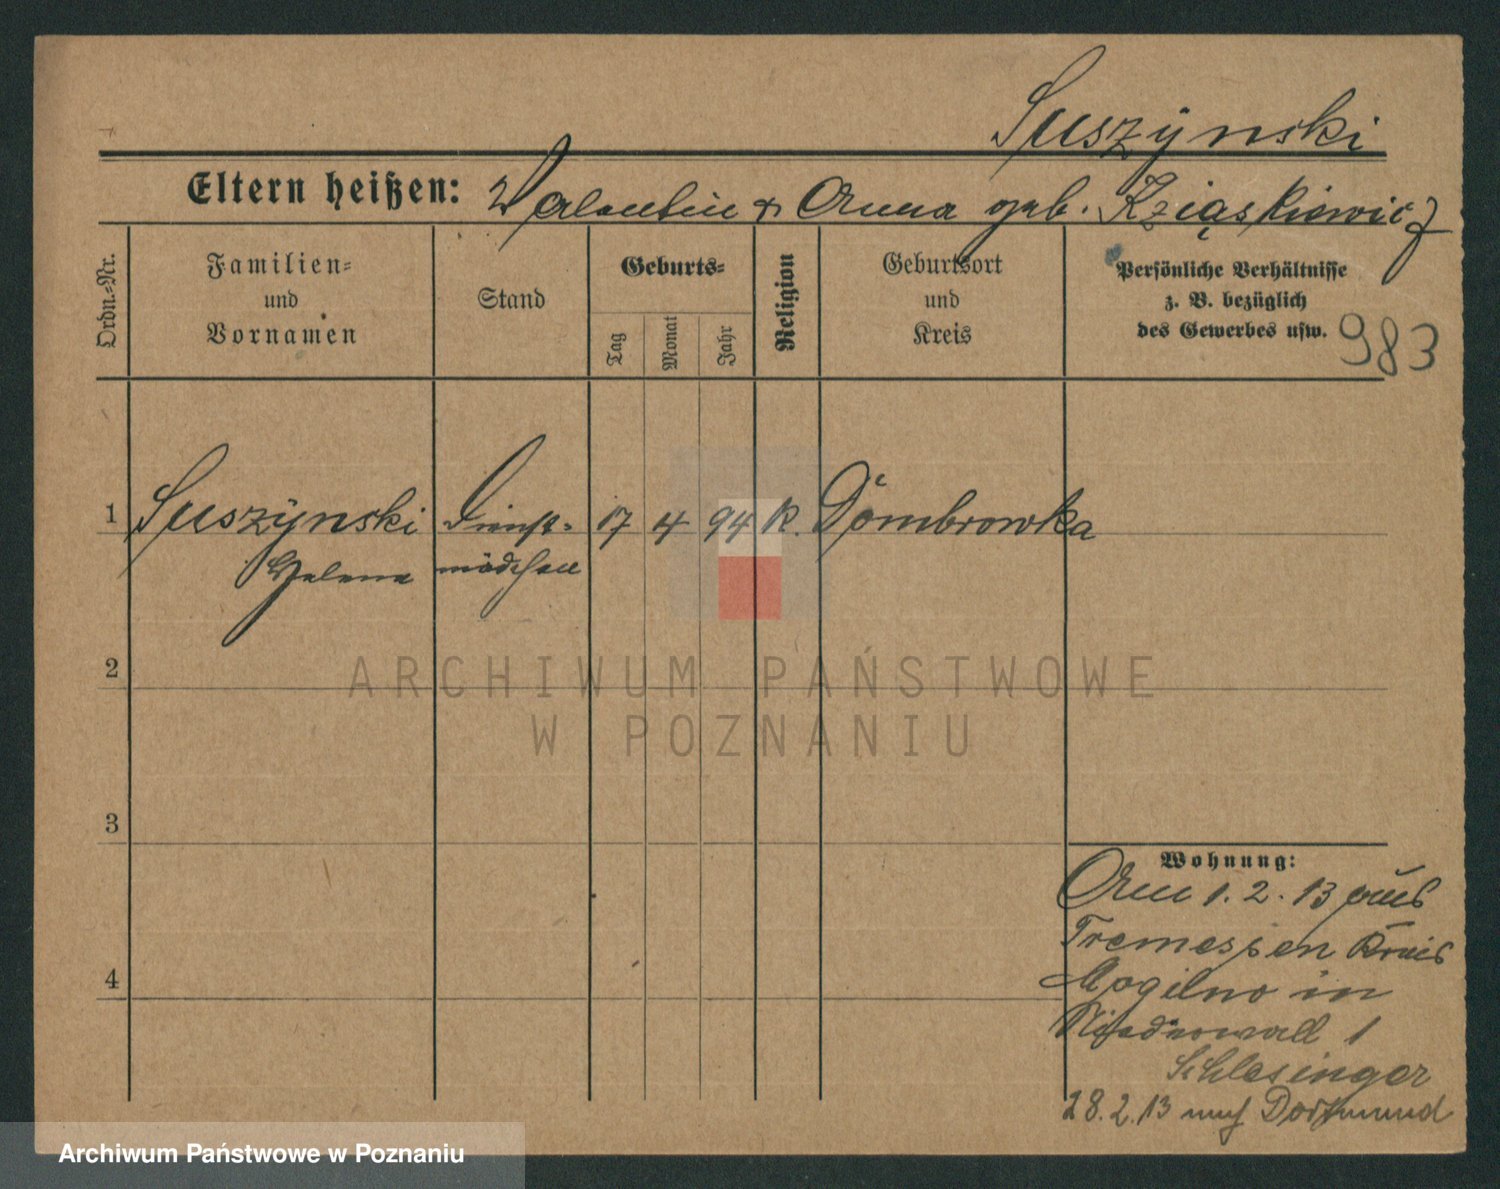 Suszÿnski
Eltern heißen: Valentin & Anna geb. Książkiewicz
Ordn.-Nr.
Familien-
und
Vornamen
Stand
Geburts-
Tag
Monat
Jahr
Religion
Geburtsort
und
Kreis
Persönliche Verhältnisse
z. B. bezüglich
des Gewerbes usw.
983
1 Suszÿnski Dienst- 17 4 94 K. Dombrowka
Helena mädchen
2
3
4
Wohnung:
Am 1. 2. 13 aus
Tremessen Kreis
Mogilno in
Niederwall 1
Schlesinger
28. 2. 13 nach Dortmund
ARCHIWUM PAŃSTWOWE
W POZNANIU
Archiwum Państwowe w Poznaniu